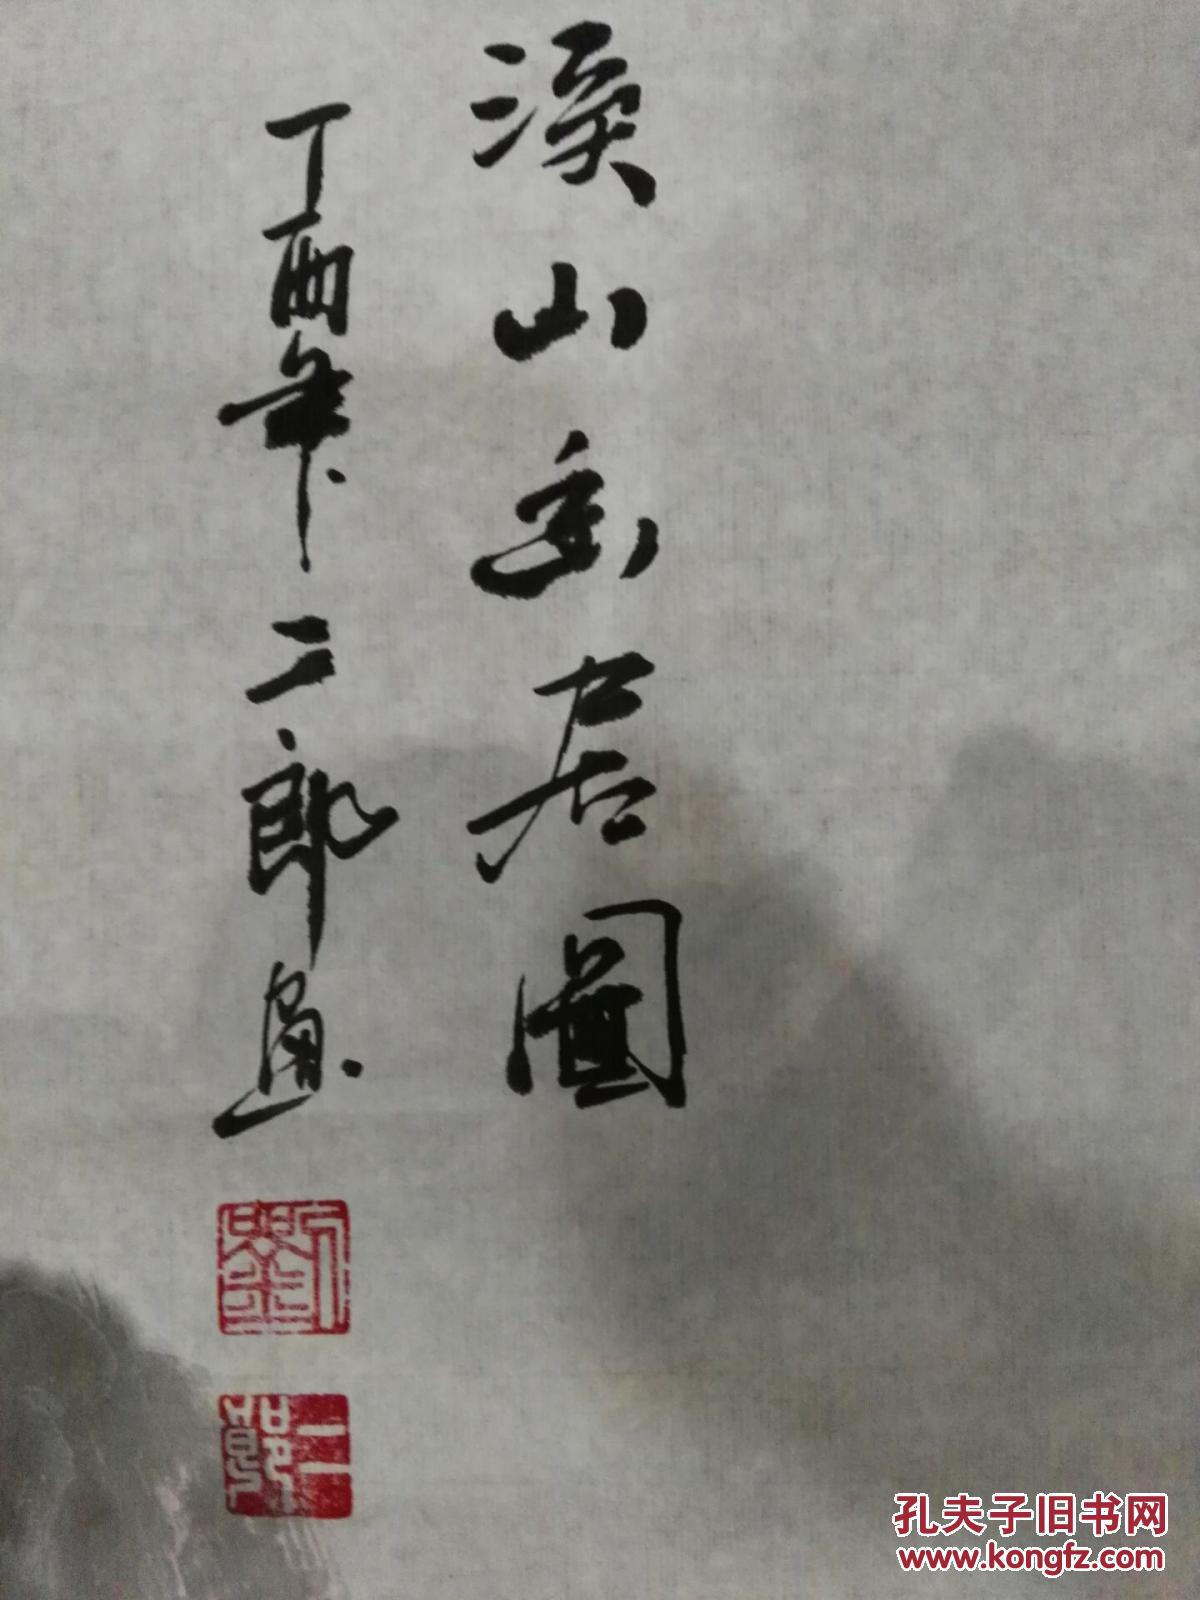 溪山幽居圖
丁酉年二郎画
劉
二郎
孔夫子旧书网
www.kongfz.com